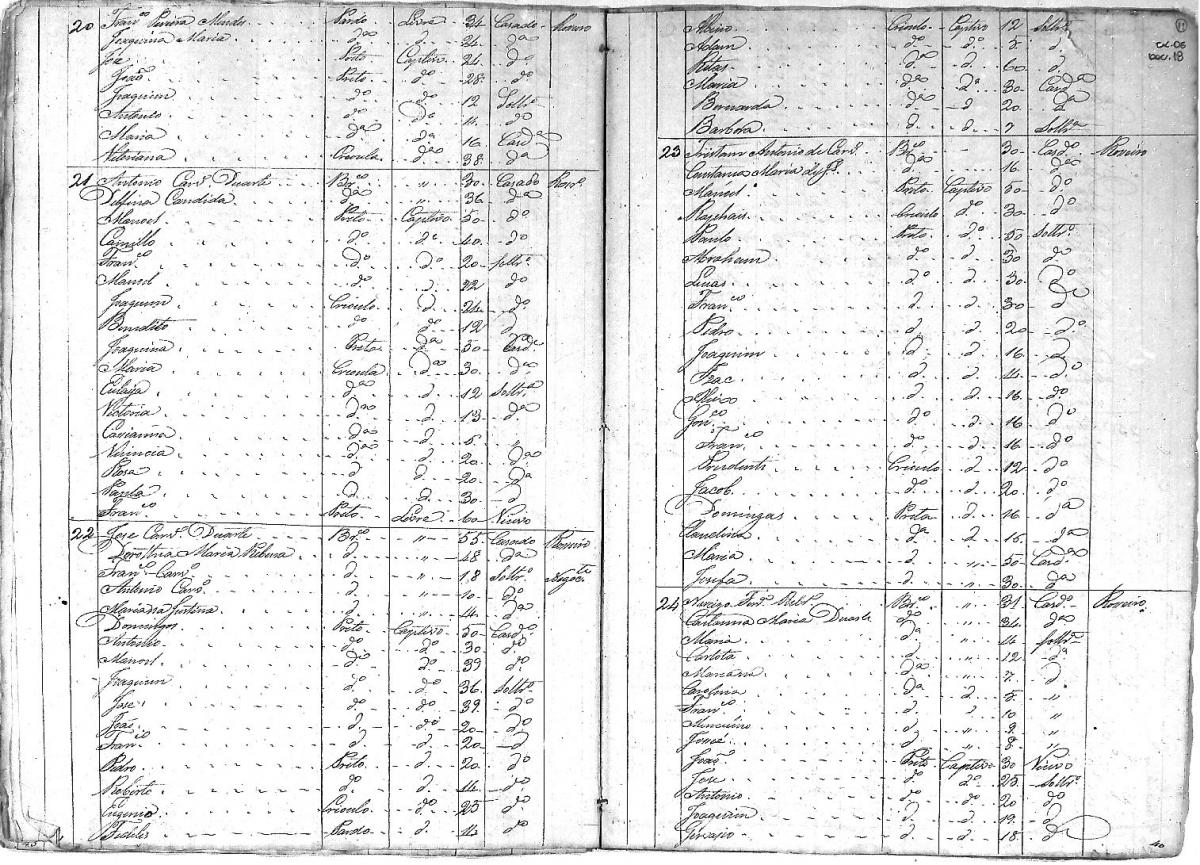 20 Fran.co Pereira Mendes Pardo Livre 34 Casado Roceiro
Joaquina Maria d.a d. 24 d.a
José Preto Captivo 24 d.o
João Preto d.o 28 d.o
Joaquim d.o d.o 12 Soltr.o
Antonio d.o d.o 14 d.o
Maria d.a d.a 16 Card.a
Vitoriana Creoula d.a 38 d.a
21 Antonio Carv.o Duarte Br.co " 30 Casado Rocr.o
Delfina Candida d.a " 36 d.a
Manoel Preto Captivo 50 d.o
Camillo d.o d.o 40 d.o
Fran.co d.o d.o 20 Soltr.o
Manoel d.o d. 22 d.o
Joaquim Creoulo d. 24 d.o
Benedito d.o d.o 12 d.
Joaquina Preta d.a 50 Card.a
Maria Creoula d.a 30 d.a
Eulaya d.a d. 12 Soltr.a
Victoria d.a d. 13 d.a
d.a d. 5 "
d.a d. 20 d.a
Rosa d. d. 20 d.a
Paula d. d. 30 d.
Fran.co Preto Livre 60 Viuvo
22 Jose Carv.o Duarte Br.co " 55 Casado Roceiro
Dorothea Maria d. " 48 d.a
Fran.co Carv.o d. " 18 Soltr.o Negoc.te
Antonio Carv.o d. " 10 d.o
Mariana Justina d. " 14 d.a
Domingos Preto Captivo 50 Card.o
Antonio d.o d.o 30 d.o
Manoel d.o d.o 39 d.o
Joaquim d.o d.o 36 Soltr.o
Jose d.o d.o 39 d.
João d. d. 20 d.o
Fran.co d. d. 20 d.
Pedro Preto d. 20 d.o
Roberto d.o d. 14 d.o
Eugenio Creoulo d.o 25 d.o
Fideles Pardo d. 14 d.o
Creoulo Captivo 12 Soltr.o
Adam d.o d.o 5 d.
Ritas d.a d. 60 d.
Maria d.a d.a 30 Card.a
Bernarda d.a d. 20 d.a
Barbora d. d. 7 Soltr.a
23 Tristam Antonio de Carv.o Br.co " 30 Card.o Roceiro
Constancia Maria d.a " 16 d.a
Manoel Preto Captivo 30 d.o
Raphael Creoulo d.o 30 d.
Paulo Preto d.o 50 Soltr.o
Abraham d.o d. 30 d.o
Lucas d.o d. 30 d.o
Fran.co d. d. 30 d.o
Pedro d. d. 20 d.o
Joaquim d. d. 16 d.
Izac d. d. 14 d.o
d. d. 16 d.o
Gon.co d.o d. 16 d.o
Fran.co d.o d. 16 d.o
Prudente Creoulo d. 12 d.o
Jacob d.o d. 20 d.o
Domingas Preta d. 16 d.a
Claudina d.a d. 16 d.a
Maria d. " 50 Card.a
Josefa d. " 30 d.a
24 Br.co " 31 Card.o Roceiro
Maria Duarte d.o " 34 d.a
Maria d.a " 14 Soltr.a
Carlota d. " 12 d.a
Mariana d.a " 7 d.
Carolina d.a d. 5 "
Fran.co d. " 10 "
d. " 9 "
José d. " 8 "
João Preto Captivo 30 Viuvo
Jose d.o d.o 25 Soltr.o
Antonio d. d.o 20 d.o
Joaquim d. d. 19 d.
Gervasio d. d. 18 d.
11
cx.06
Doc. 18